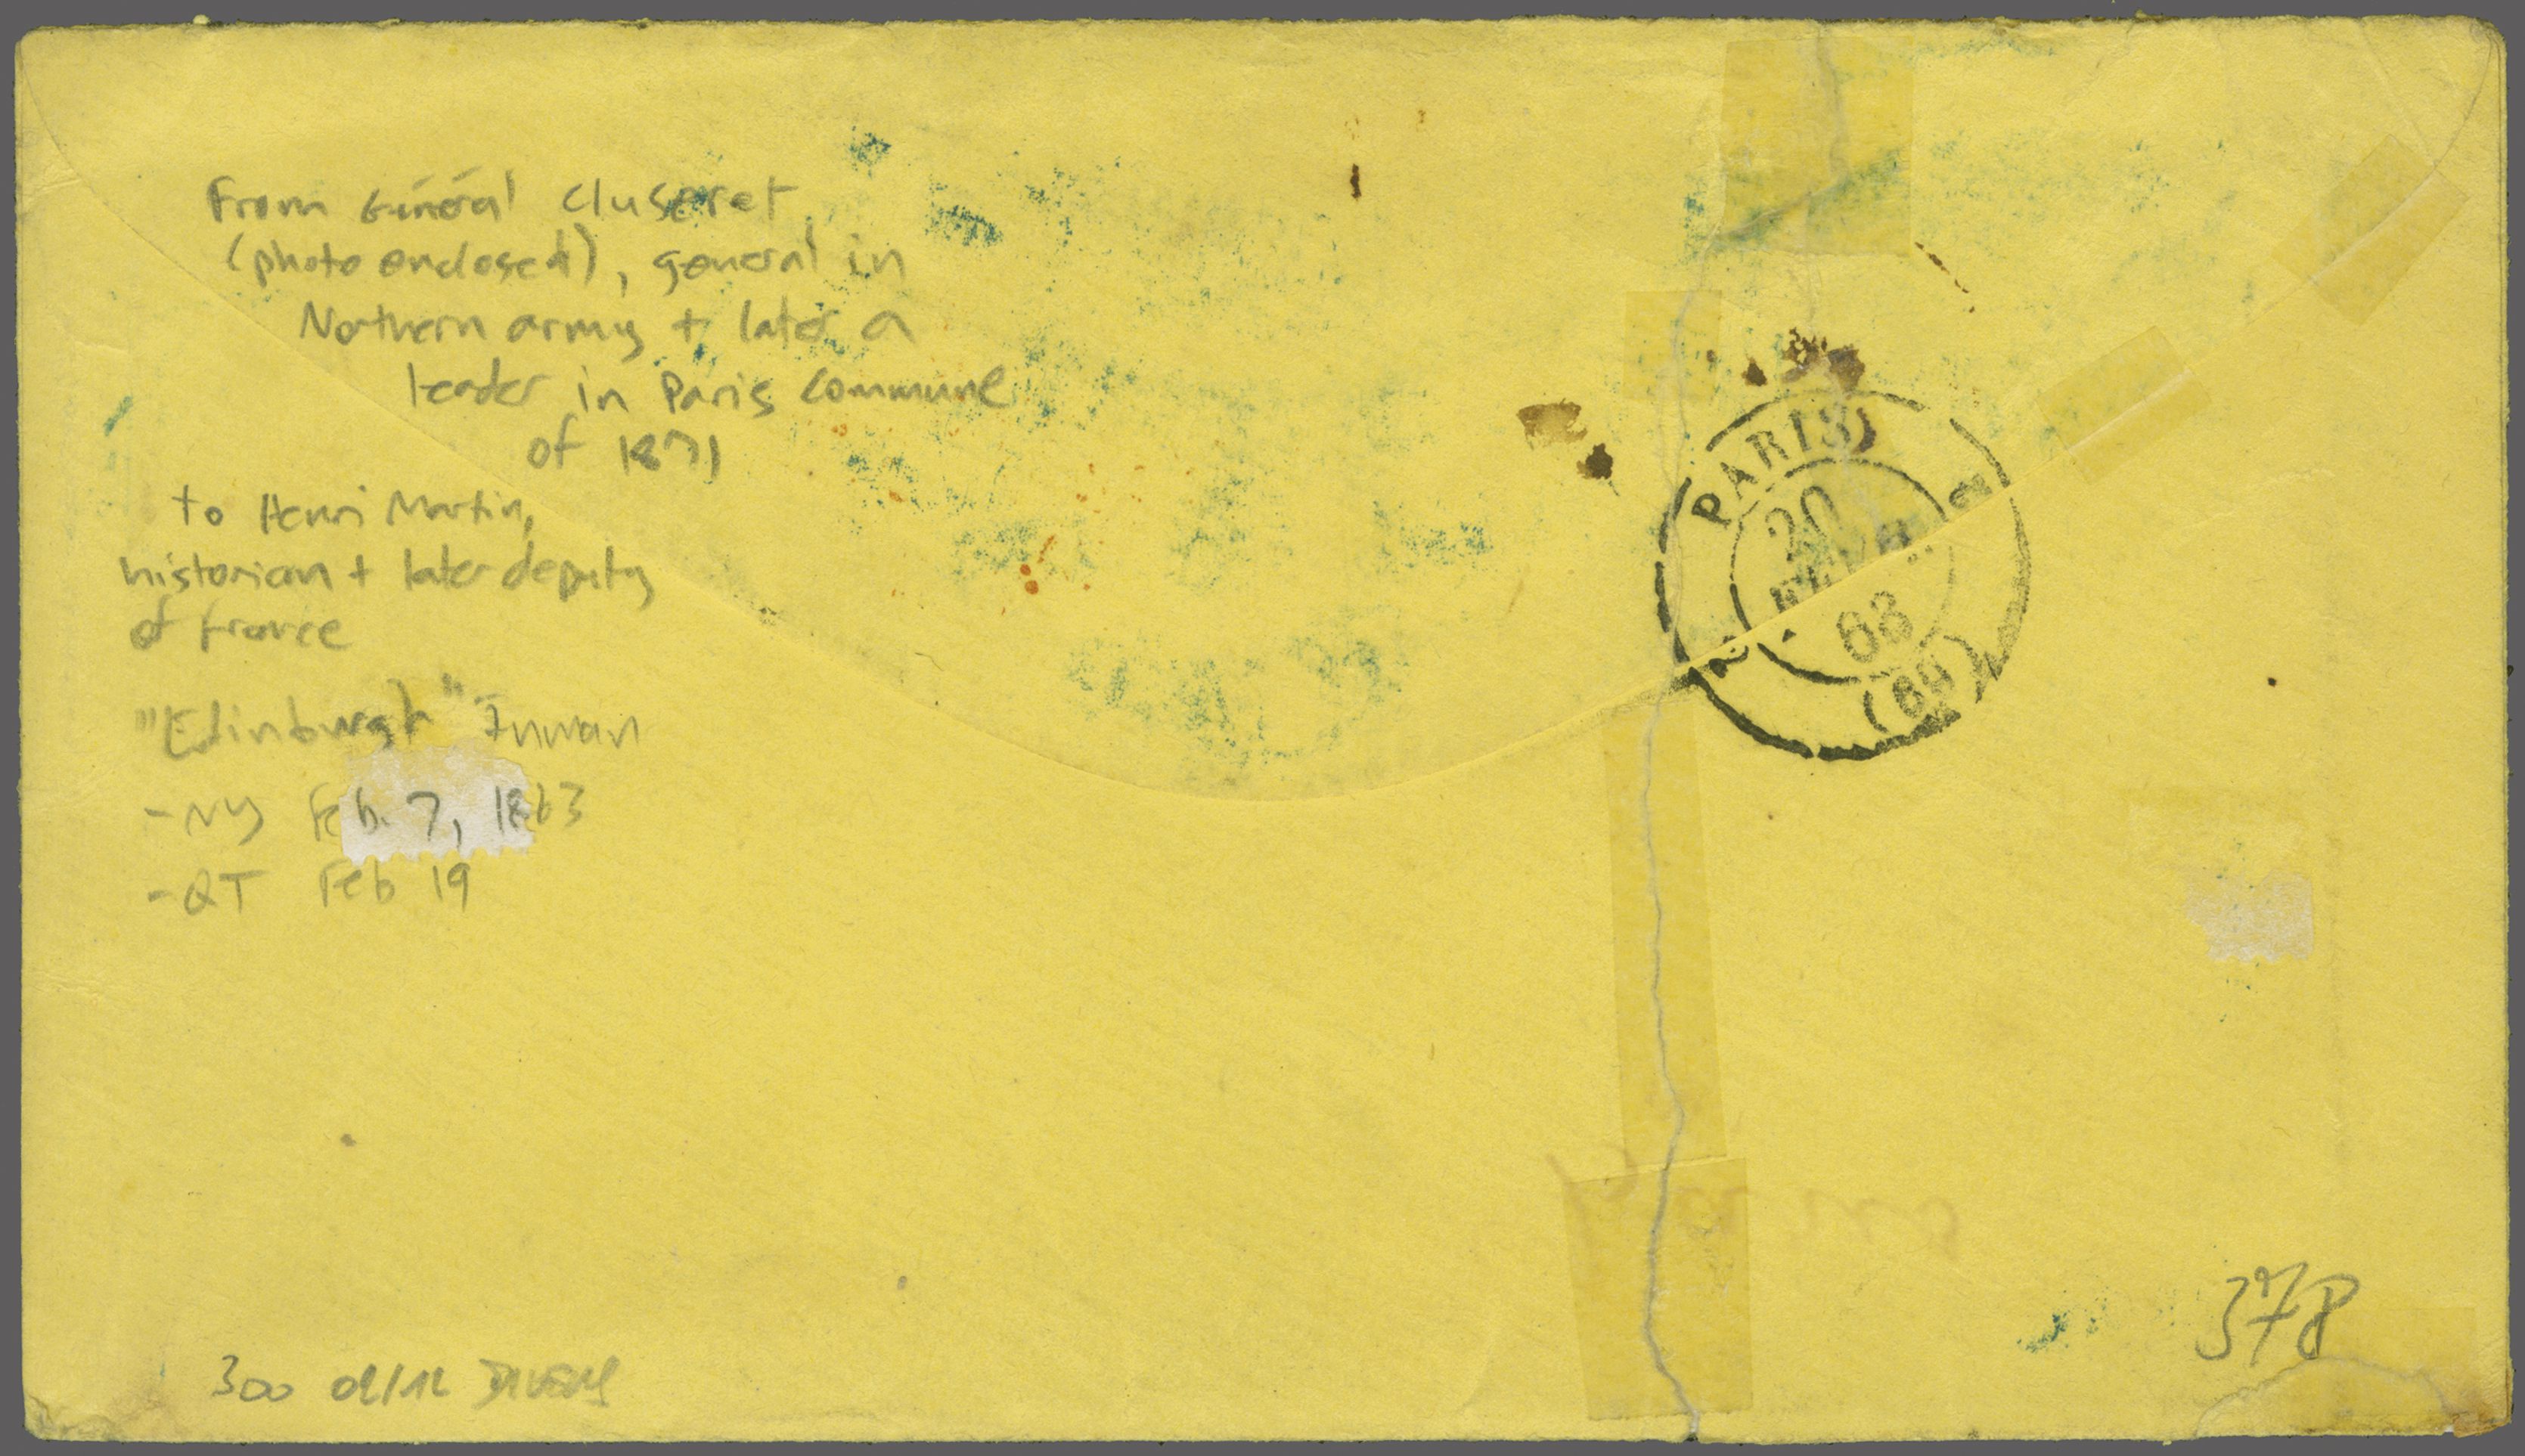 From Général Cluseret
(photo enclosed), general in
Northern army + later a
leader in Paris Commune
of 1871
to Henri Martin,
historian + later deputy
of France
"Edinburgh" Inman
- NY Feb. 7, 1863
- QT Feb 19
PARIS
20
FEVR
63
(60)
378
300